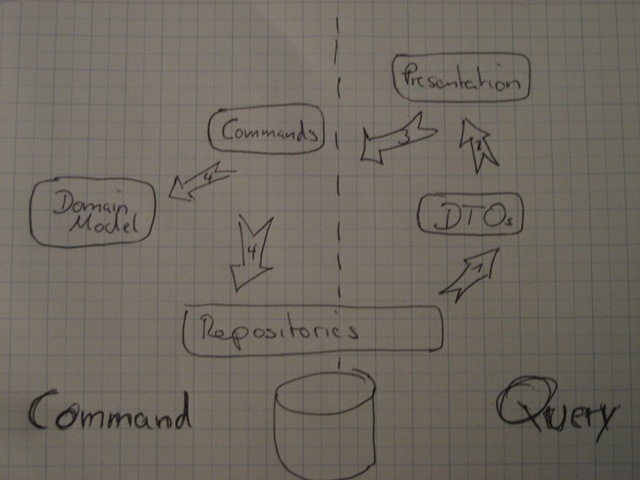 Presentation
Commands
3
2
4
Domain
Model
DTOs
4
1
Repositories
Command
Query